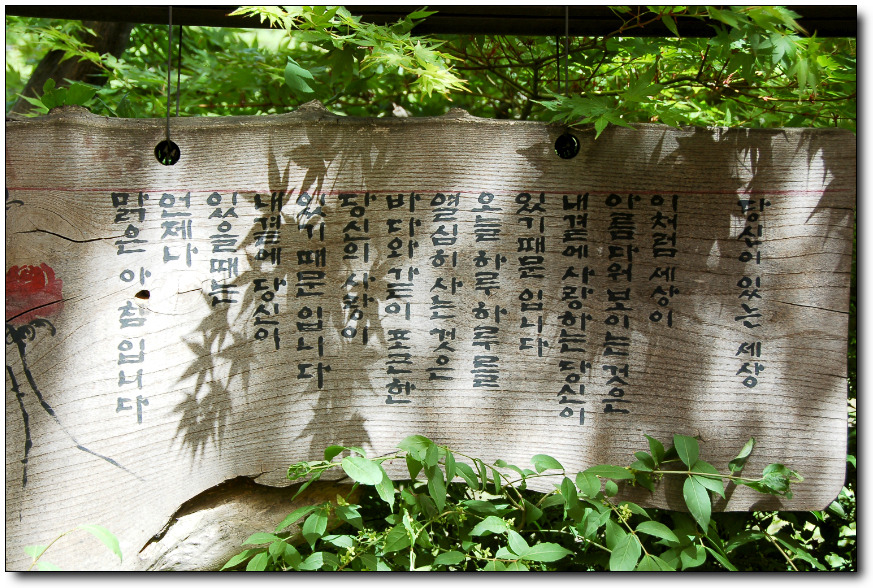 당신이 있는 세상
이처럼 세상이
아름다워 보이는 것은
내 곁에 사랑하는 당신이
있기 때문 입니다
오늘 하루 하루를
열심히 사는 것은
바다와 같이 포근한
당신의 사랑이
있기 때문 입니다
내 곁에 당신이
있을때는
언제나
맑은 아침 입니다